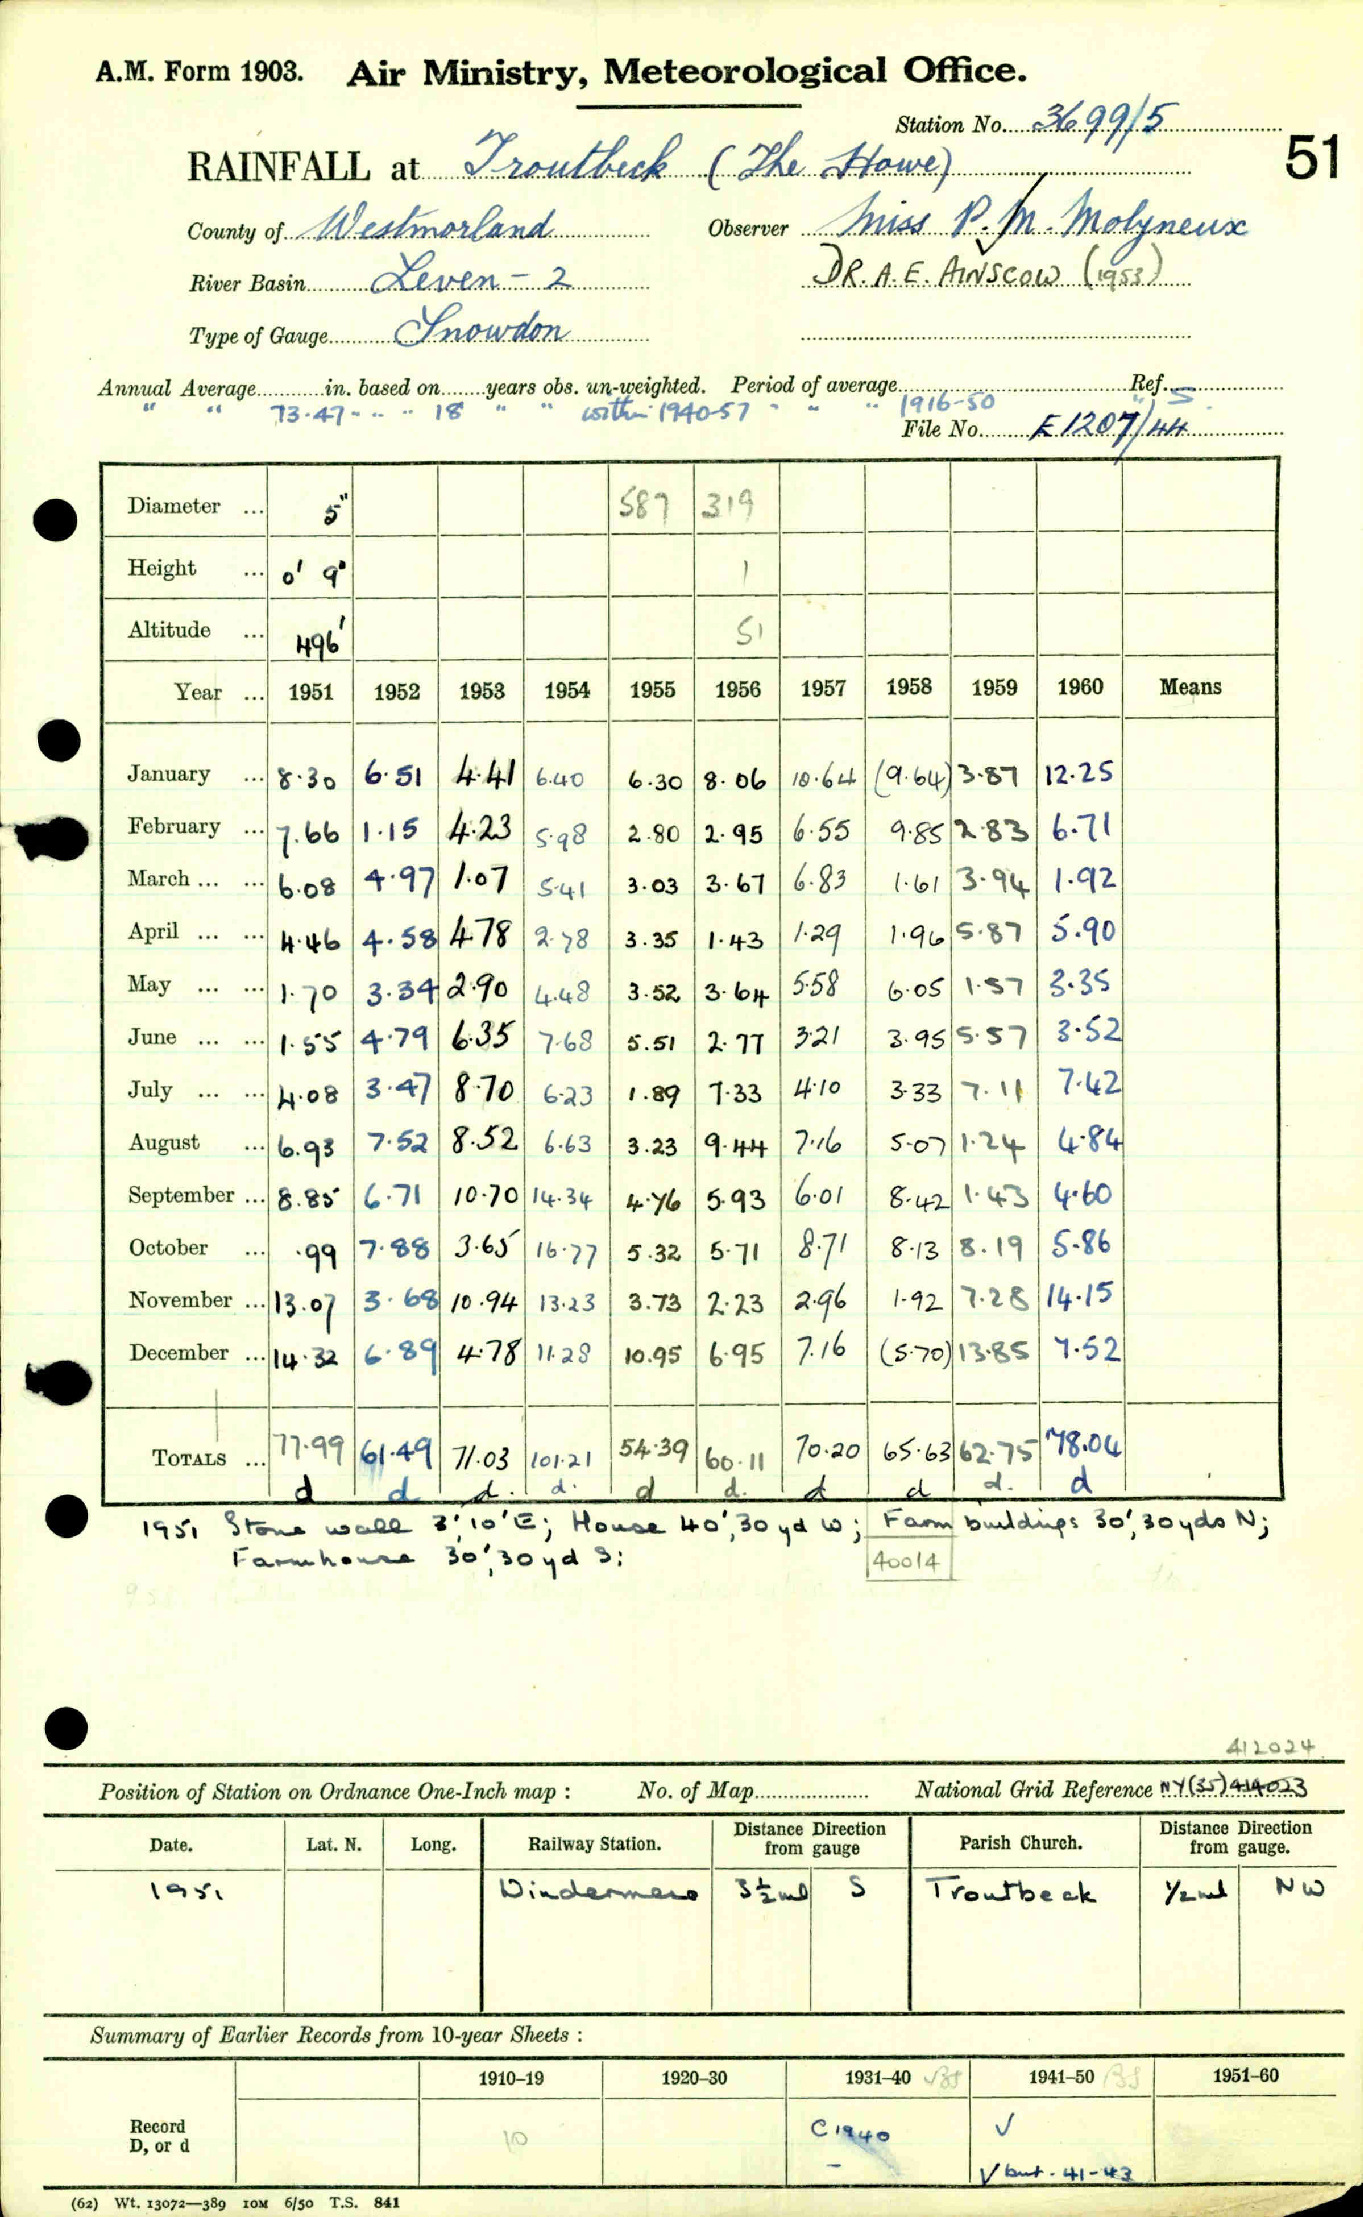 A.M. Form 1903. Air Ministry, Meteorological Office.
Station No. 3699/5
51
RAINFALL at Troutbeck (The Howe)
County of Westmorland Observer Miss P. M. Molyneux
River Basin Leven - 2 DR. A. E. AINSCOW (1953)
Type of Gauge Snowdon
Annual Average in. based on years obs. un-weighted. Period of average Ref.
" " 73.47 " " " 18 " " within 1940-57 " " " 1916-50 " S.
File No. E1207/44
Diameter ... 5" 587 319
Height ... 0' 9" 1
Altitude ... 496' 51
Year ... 1951 1952 1953 1954 1955 1956 1957 1958 1959 1960 Means
January ... 8.30 6.51 4.41 6.40 6.30 8.06 10.64 (9.64) 3.87 12.25
February ... 7.66 1.15 4.23 5.98 2.80 2.95 6.55 9.85 2.83 6.71
March ... ... 6.08 4.97 1.07 5.41 3.03 3.67 6.83 1.61 3.94 1.92
April ... ... 4.46 4.58 4.78 2.78 3.35 1.43 1.29 1.96 5.87 5.90
May ... ... 1.70 3.34 2.90 4.48 3.52 3.64 5.58 6.05 1.57 3.35
June ... ... 1.55 4.79 6.35 7.68 5.51 2.77 3.21 3.95 5.57 3.52
July ... ... 4.08 3.47 8.70 6.23 1.89 7.33 4.10 3.33 7.11 7.42
August ... 6.93 7.52 8.52 6.63 3.23 9.44 7.16 5.07 1.24 4.84
September ... 8.85 6.71 10.70 14.34 4.76 5.93 6.01 8.42 1.43 4.60
October ... .99 7.88 3.65 16.77 5.32 5.71 8.71 8.13 8.19 5.86
November ... 13.07 3.68 10.94 13.23 3.73 2.23 2.96 1.92 7.28 14.15
December ... 14.32 6.89 4.78 11.28 10.95 6.95 7.16 (5.70) 13.85 7.52
TOTALS ... 77.99 61.49 71.03 101.21 54.39 60.11 70.20 65.63 62.75 78.04
d d d. d. d d. d d d. d
1951 Stone wall 3', 10' E; House 40', 30 yd W; Farm buildings 30', 30 yds N;
Farmhouse 30', 30 yd S;
40014
412024
Position of Station on Ordnance One-Inch map : No. of Map National Grid Reference NY(35)414023
Date. Lat. N. Long. Railway Station. Distance Direction from gauge Parish Church. Distance Direction from gauge.
1951 Windermere 3½ ml S Troutbeck ½ ml NW
Summary of Earlier Records from 10-year Sheets :
1910–19 1920–30 1931–40 1941–50 1951–60
Record D, or d 10 C 1940 – √
√ but. 41-43
(62) Wt. 13072—389 10M 6/50 T.S. 841